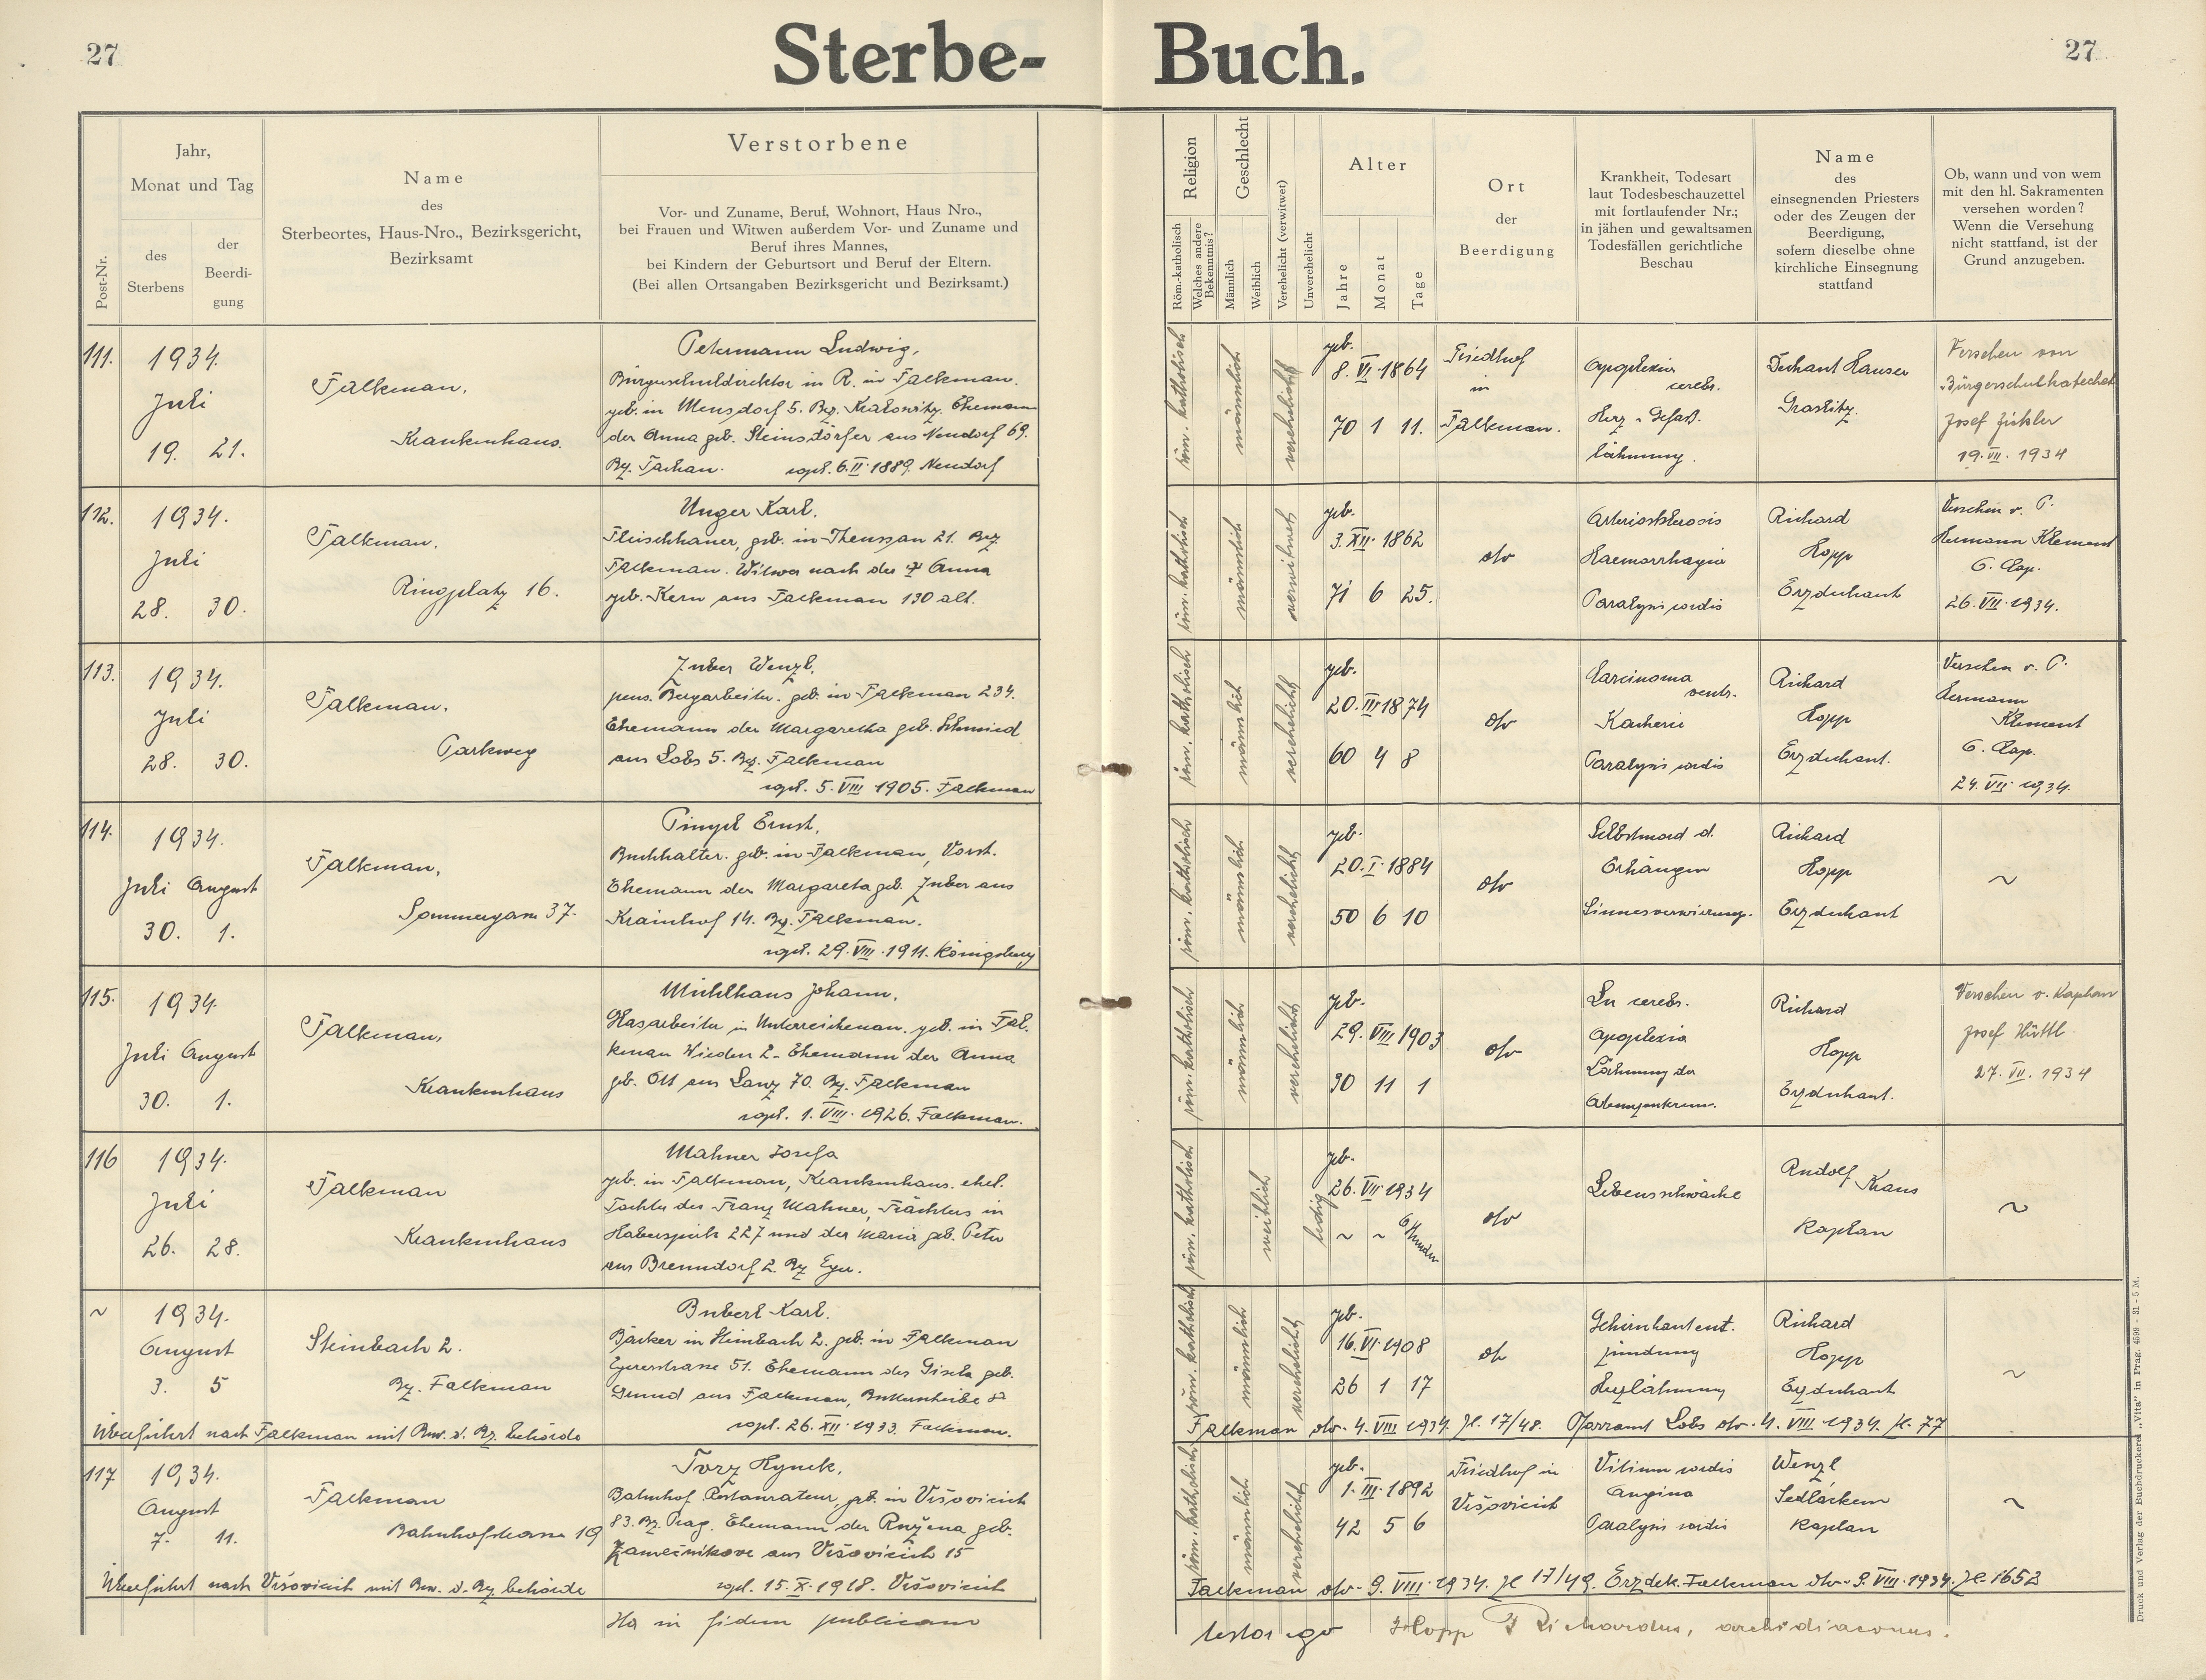 27
Sterbe-
Buch.
27
Post-Nr.
Jahr,
Monat und Tag
des
Sterbens
der
Beerdi-
gung
Name
des
Sterbeortes, Haus-Nro., Bezirksgericht,
Bezirksamt
Verstorbene
Vor- und Zuname, Beruf, Wohnort, Haus Nro.,
bei Frauen und Witwen außerdem Vor- und Zuname und
Beruf ihres Mannes,
bei Kindern der Geburtsort und Beruf der Eltern.
(Bei allen Ortsangaben Bezirksgericht und Bezirksamt.)
Religion
Röm.-katholisch
Welches andere
Bekenntnis?
Geschlecht
Männlich
Weiblich
Verehelicht (verwitwet)
Unverehelicht
Alter
Jahre
Monat
Tage
Ort
der
Beerdigung
Krankheit, Todesart
laut Todesbeschauzettel
mit fortlaufender Nr.;
in jähen und gewaltsamen
Todesfällen gerichtliche
Beschau
Name
des
einsegnenden Priesters
oder des Zeugen der
Beerdigung,
sofern dieselbe ohne
kirchliche Einsegnung
stattfand
Ob, wann und von wem
mit den hl. Sakramenten
versehen worden?
Wenn die Versehung
nicht stattfand, ist der
Grund anzugeben.
111.
1934.
Juli
19. 21.
Falkenau,
Krankenhaus.
Petermann Ludwig,
Bürgerschuldirektor in R. in Falkenau.
geb. in Mensdorf 5. Bez. Ehemann
der Anna geb. Steinsdörfer aus Neudorf 69.
Bz. Tachau. copl. 6. II. 1889. Neudorf
röm. katholisch
männlich
verehelicht
geb.
8. VI. 1864
70 1 11.
Friedhof
in
Falkenau.
Apoplexia
cerebr.
Herz u. Gefäß.
lähmung.
Dechant Hauser
Graslitz.
Versehen von
Bürgerschulkatechet
Josef
19. VII. 1934
112.
1934.
Juli
28. 30.
Falkenau,
Ringplatz 16.
Unger Karl,
Fleischhauer, geb. in Theussau 21. Bez
Falkenau. Witwer nach der † Anna
geb. Kern aus Falkenau 130 alt.
röm. katholisch
männlich
verwitwet
geb.
3. XII. 1862
71 6 25.
dto
Arteriosklerosis
Haemorrhagia
Paralysis cordis
Richard
Hopp
Erzdechant
Versehen v. P.
Hermann Klement
O. Cap.
26. VII. 1934.
113.
1934.
Juli
28. 30.
Falkenau,
Parkweg
Zuber Wenzl,
pens. Bergarbeiter. geb. in Falkenau 234.
Ehemann der Margaretha geb. Schmied
aus Lobs 5. Bz. Falkenau
copl. 5. VIII 1905. Falkenau
röm. katholisch
männlich
verehelicht
geb.
20. III 1874
60 4 8
dto
Carcinoma
ventr.
Kachexie
Paralysis cordis
Richard
Hopp
Erzdechant.
Versehen v. P.
Hermann
Klement
O. Cap.
24. VII. 1934.
114.
1934.
Juli August
30. 1.
Falkenau,
Sommergasse 37.
Pimpel Ernst,
Buchhalter. geb. in Falkenau, Vorst.
Ehemann der Margareta geb. Zuber aus
Krainhof 14. Bz. Falkenau.
copl. 29. VIII. 1911. Königsberg
röm. katholisch
männlich
verehelicht
geb.
20. I. 1884
50 6 10
dto
Selbstmord d.
Erhängen
Sinnesverwirrung.
Richard
Hopp
Erzdechant
~
115.
1934.
Juli August
30. 1.
Falkenau,
Krankenhaus
Mühlhans Johann,
Glasarbeiter in Unterreichenau. geb. in Fal-
kenau Wieden 2. Ehemann der Anna
geb. Ott aus Lanz 70. Bz. Falkenau
copl. 1. VIII. 1926. Falkenau.
röm. katholisch
männlich
verehelicht
geb.
29. VIII 1903
30 11 1
dto
Lu cerebr.
Apoplexia
Lähmung der
Atemzentrum.
Richard
Hopp
Erzdechant.
Versehen v. Kaplan
Josef Hüttl
27. VII. 1934
116
1934.
Juli
26. 28.
Falkenau
Krankenhaus
Mahner Josefa
geb. in Falkenau, Krankenhaus. ehel.
Tochter des Franz Mahner, Frächters in
Haberspirk 227 und der Maria geb. Peter
aus Brenndorf 2. Bz Eger.
röm. katholisch
weiblich
ledig
geb.
26. VII. 1934
~ ~ 6 Stunden
dto
Lebensschwäche
Rudolf Kraus
Kaplan
~
~
1934.
August
3. 5
Steinbach 2.
Bz. Falkenau
Bubert Karl.
Bäcker in Steinbach 2. geb. in Falkenau
Egererstrasse 51. Ehemann der Gisela geb.
Grund aus Falkenau,
copl. 26. XII. 1933. Falkenau.
Überführt nach Falkenau mit Bew. d. Bz. behörde
röm. katholisch
männlich
verehelicht
geb.
16. VI 1908
26 1 17
dto
Gehirnhautent-
zündung
Herzlähmung
Richard
Hopp
Erzdechant
~
Falkenau dto. 4. VIII 1934. Zl. 17/48. Pfarramt Lobs dto. 4. VIII 1934. Zl. 77
117
1934.
August
7. 11.
Falkenau
Bahnhofstrasse 19
Torz Hynek,
Bahnhof Restaurateur, geb. in Všovicích
83. Bz. Prag. Ehemann der Ružena geb.
Zamečnikova aus Všovicích 15
copl. 15. X. 1918. Všovicích
Überführt nach Všovicích mit Bew. d. Bz. behörde
röm. katholisch
männlich
verehelicht
geb.
1. III. 1892
42 5 6
Friedhof in
Všovicích
Vitium cordis
Angina
Paralysis cordis
Wenzl
Sedláček
Kaplan
~
Falkenau dto. 9. VIII. 1934. Zl 17/49. Erzdek. Falkenau dto. 9. VIII. 1934. Zl. 1652
Ita in fidem publicam
testor ego Hopp Richardus, archidiaconus.
Druck und Verlag der Buchdruckerei „Vita“ in Prag. 4599 - 31 - 5 M.